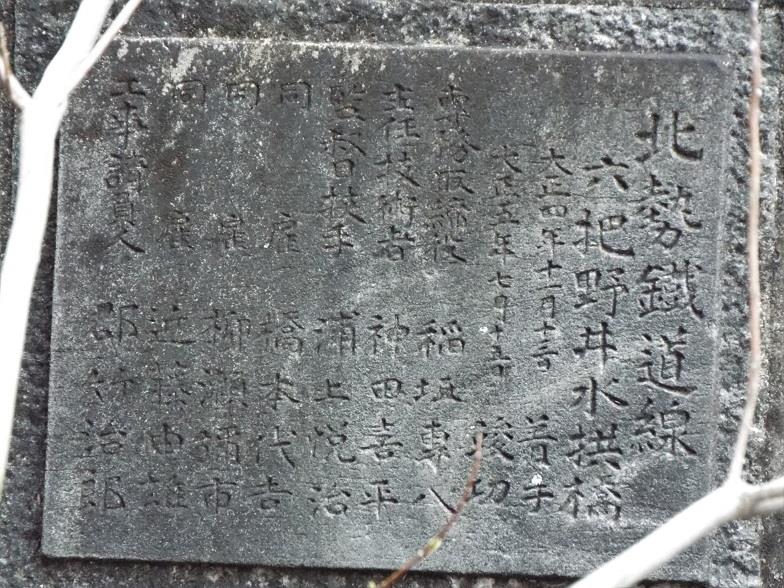 北勢鐵道線
六把野井水拱橋
大正四年十一月十三日 着手
大正五年七月十五日 竣功
專務取締役 稲垣專八
主任技術者 神田喜平
監督技手 浦上悦治
同 雇 橋本代吉
同 雇 柳瀬彌市
同 雇 近藤由雄
工事請負人 治郎